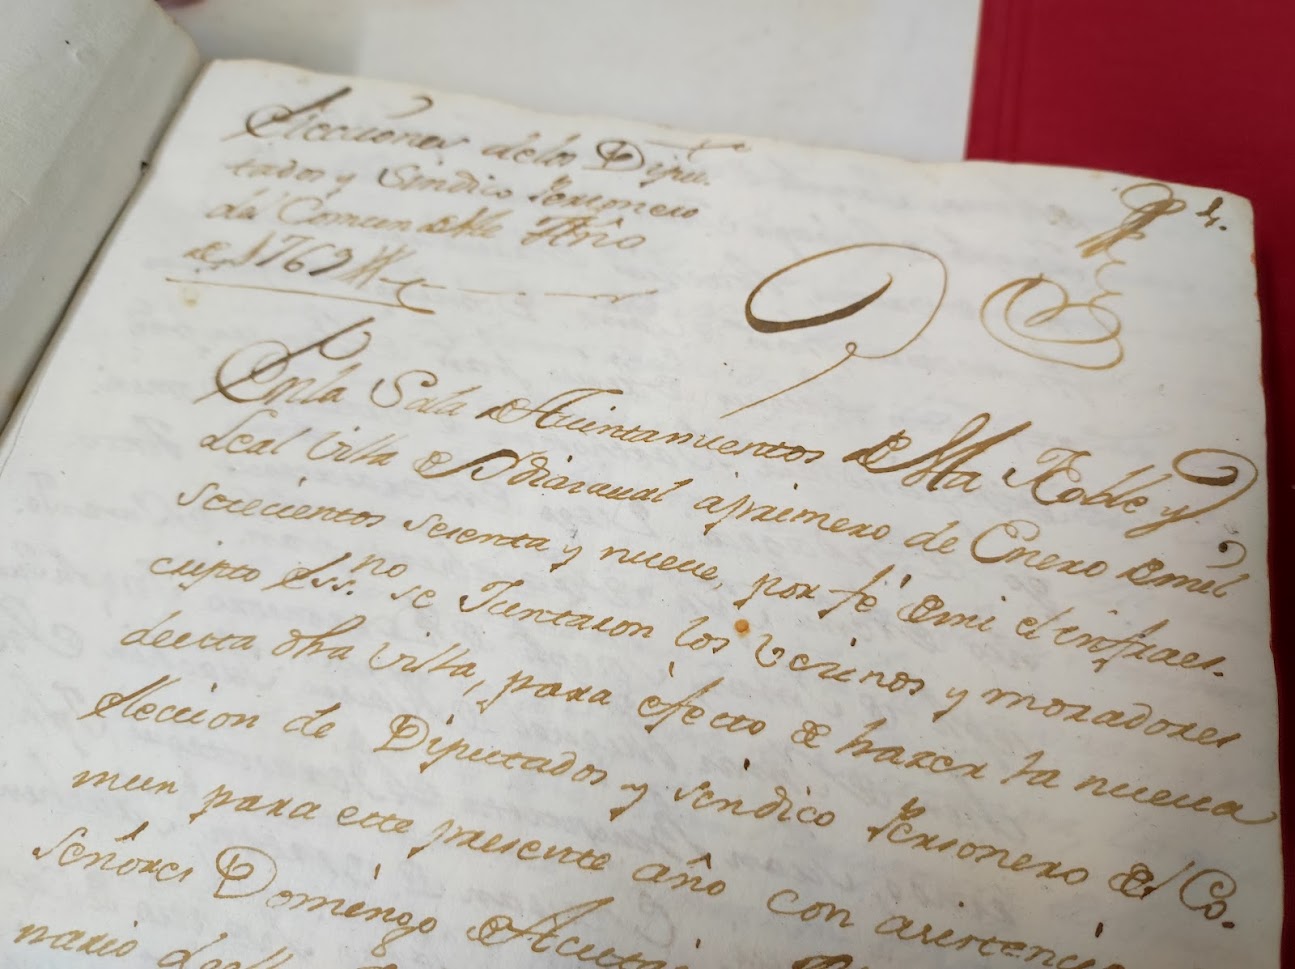 Elecciones delos Dipu-
tados y Sindico Personero
del Comun deste Año
de 1769
En la Sala de Aiuntamientos de esta Noble y
Leal Villa de a primero de Enero de mil
setecientos sesenta y nueve, por fé de mi el infraes-
cripto Ess.no se Juntaron los Vecinos y moradores
de esta dha Villa, para efecto de hazer la nueva
Eleccion de Diputados y sindico Personero del Co-
mun para este presente año con asistencia
Señores Domingo de
nario